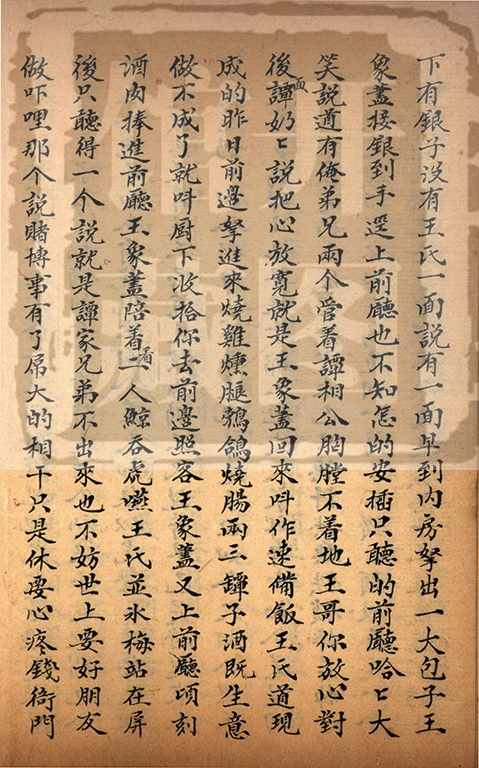 下有銀子没有王氏一面説有一面早到内房拏出一大包子王
象藎接銀到手遞上前廳也不知怎的安插只聽的前廳哈〻大
笑説道有俺弟兄兩个管着譚相公胸膛不着地王哥你放心對
後面譚奶〻説把心放寛就是王象藎回來呌作速備飯王氏道現
成的昨日前邊拏進來燒雞燻腿鵓鴿燒腸兩三罈子酒既生意
做不成了就呌厨下收拾你去前邊照客王象藎又上前廳頃刻
酒肉捧進前廳王象藎陪着看二人鯨吞虎嚥王氏並氷梅站在屏
後只聽得一个説就是譚家兄弟不出來也不妨世上要好朋友
做吓哩那个説賭博事有了屌大的相干只是休要心疼錢衙門